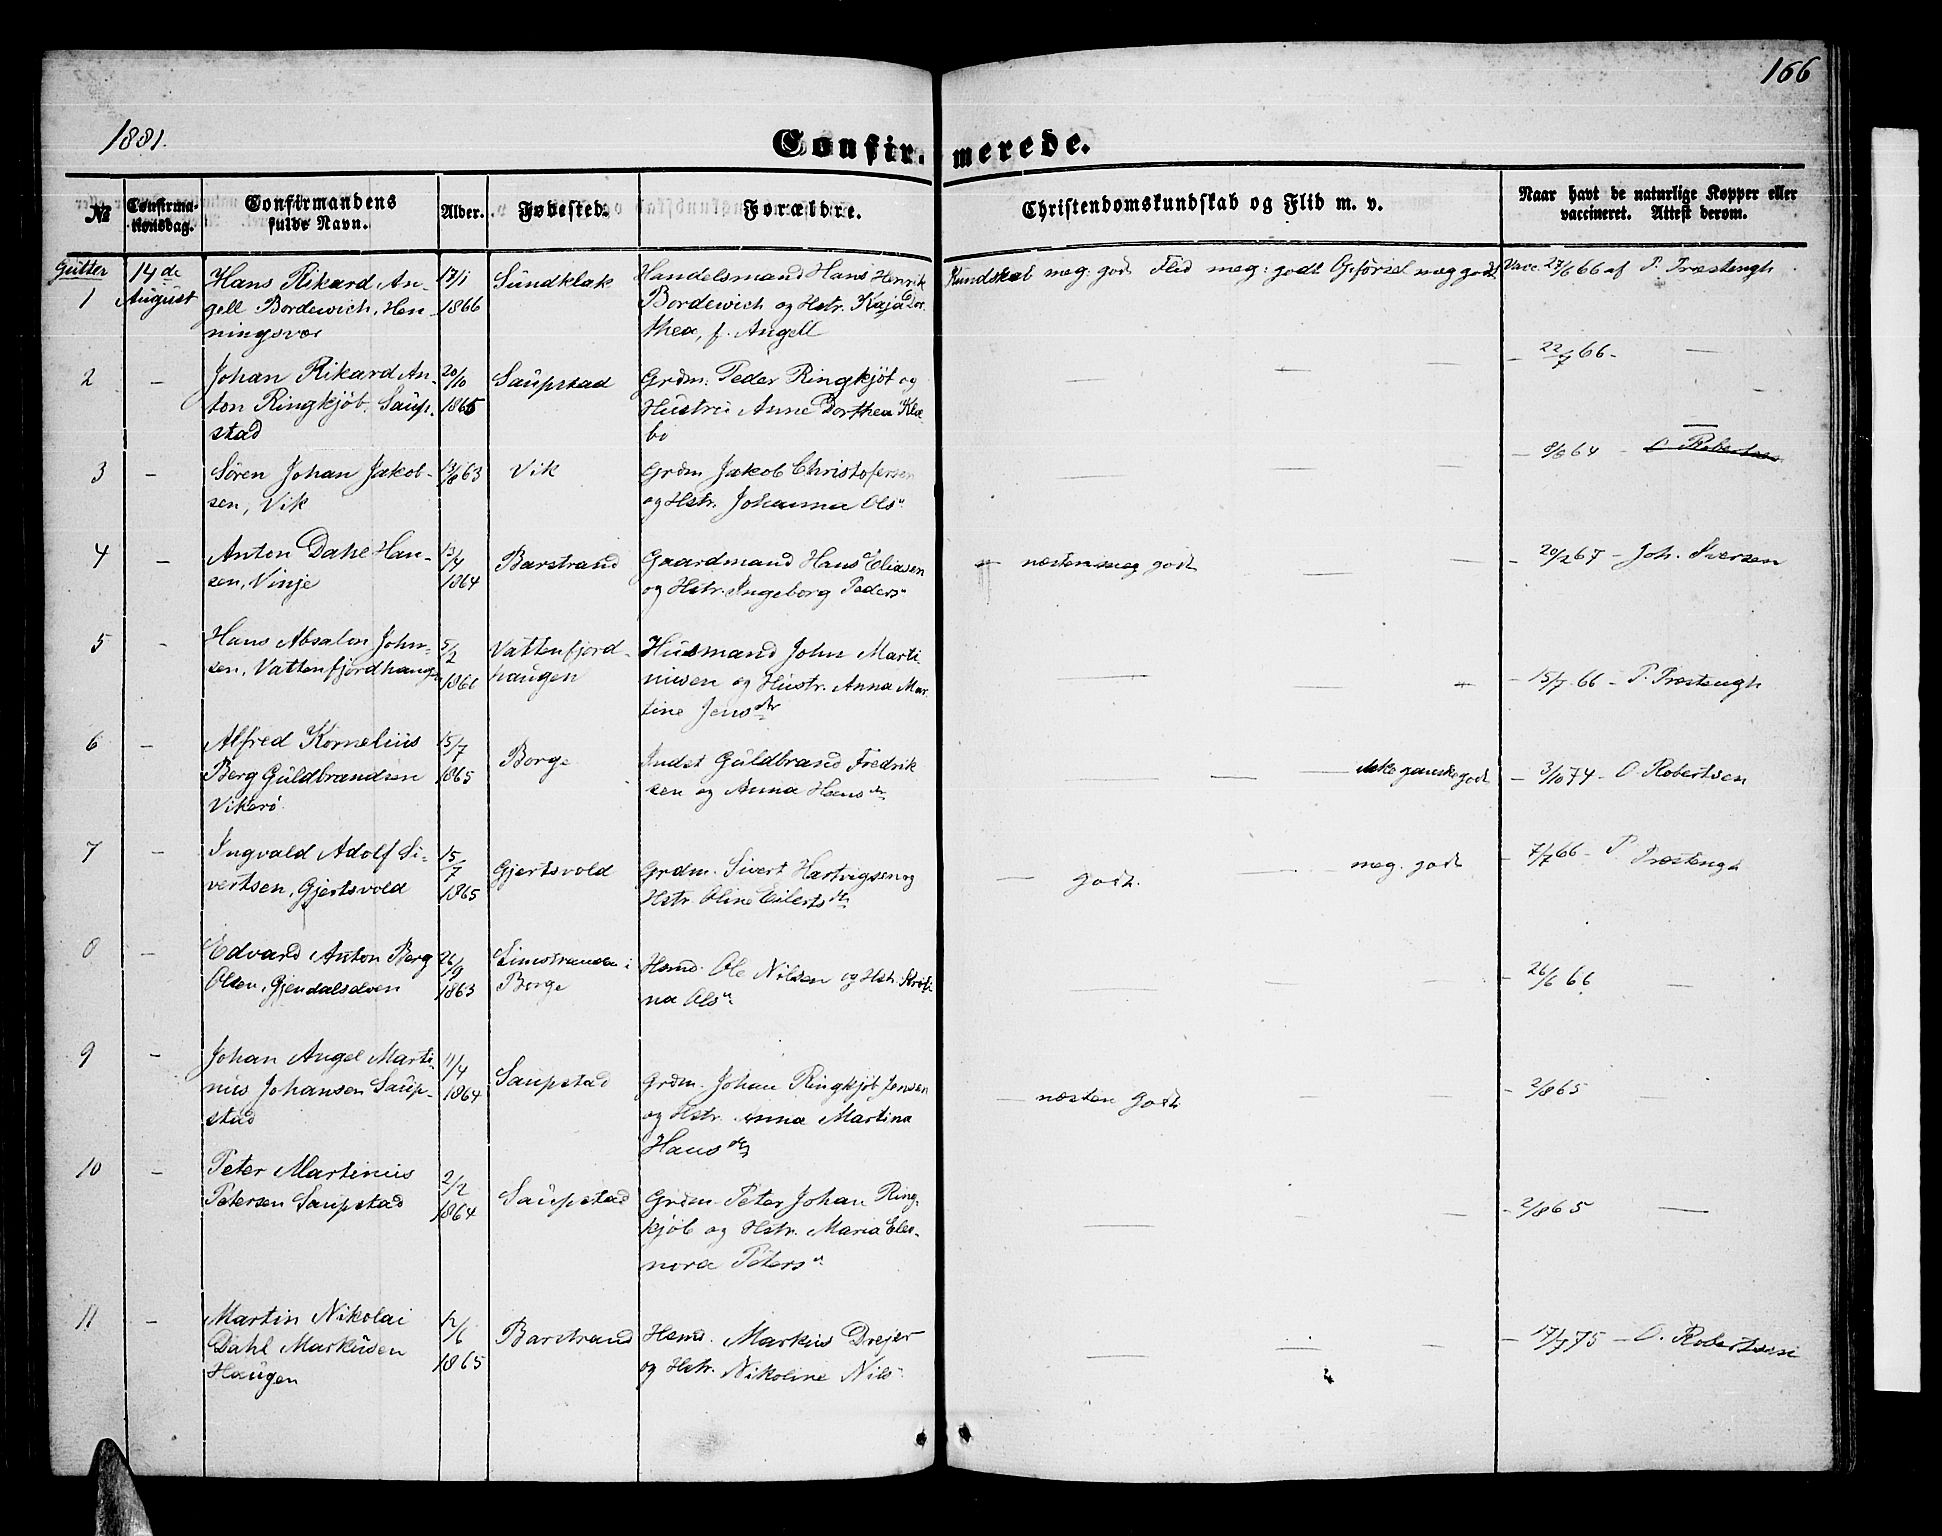 166
1881.
Confirmerede.
№
Confirmationsdag.
Confirmandens fulde Navn.
Alder.
Fødested.
Forældre.
Christendomskundskab og Flid m. v.
Naar havt de naturlige Kopper eller vaccineret. Attest derom.
Gutter
1
14de August
Hans Rikard An-
gell Bordewich, Hen-
ningsvær
17/1
1866
Sundklak
Handelsmand Hans Henrik
Bordewich og Hstr. Kaja Dor-
thea, f. Angell
Kundskab meg: godt Flid meg: godt Opførsel meg godt
Vacc. 27/6 66 af P. Præstengh
2
–
Johan Rikard An-
ton Ringkjöb, Saup-
stad
20/10
1865
Saupstad
Grdm. Peder Ringkjöb og
Hustru Anne Dorthea Klæ-
bo
— — —
– 22/7 66 – —
3
–
Sören Johan Jakob-
sen, Vik
13/8 63
Vik
Grdm Jakob Christofersen
og Hstr. Johanna Olsn
— — —
– 8/8 64 – O Robertsen
4
–
Anton Dahl Han-
sen, Vinje
13/4
1864
Barstrand
Gaardmand Hans Eliasen
og Hstr. Ingeborg Pedersn
– næsten meg godt — —
– 20/2 67 – Joh. Iversen
5
–
Hans Absalon John-
sen, Vattenfjordhaugen
5/2
1866
Vattenfjord-
haugen
Husmand John Marti-
niusen og Hustr. Anna Mar-
tine Jensdtr
— — –
– 15/7 66 – P. Præstengh
6
–
Alfred Kornelius
Berg Guldbrandsen
Vikerö
15/7
1865
Borge
Inds. Guldbrand Fredrik
sen og Anna Hansdr
— — ikke ganske godt
– 3/10 74 – O Robertsen
7
–
Ingvald Adolf Si-
vertsen, Gjertsvold
15/7
1865
Gjertsvold
Grdm. Sivert Hartvigsen og
Hstr. Oline Eilertsdtr
— godt. — meg. godt
– 7/7 66 – P. Præstengh
8
–
Edvard Anton Berg
Olsen, Gjendalselven
26/9
1863
Limstranden i
Borge
Hsmd. Ole Nilsen og Hstr.
na Olsn
— — —
– 26/6 66 —
9
–
Johan Angel Marti-
nus Johansen Saup-
stad
11/4
1864
Saupstad
Grdm. Johan Ringkjöb Jensen
og Hstr. Anna Martina
Hansdtr
— næsten godt — —
– 2/8 65 —
10
–
Peter Martinus
Petersen Saupstad
2/2
1864
Saupstad
Grdm. Peter Johan Ring-
kjöb og Hstr. Maria Eleo-
nora Petersn
— — —
– 2/8 65 —
11
–
Martin Nikolai
Dahl Markusen
Haugen
12/6
1865
Barstrand
Hsmd. Markus Drejer
og Hstr. Nikoline Nilsn
— — –
– 17/7 75 – O. Robertsen